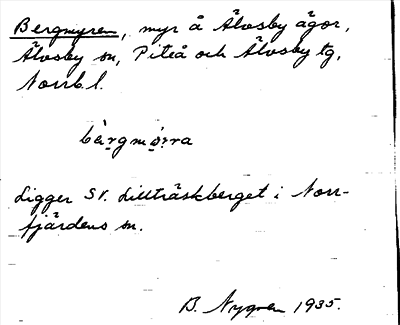 Bergmyren, myr å Älvsby ägor,
Älvsby sn, Piteå och Älvsby tg,
Norrb. l.
bèrgmø̣rra
Ligger SV. Lillträskberget i Norr-
fjärdens sn.
B. Nygren 1935.